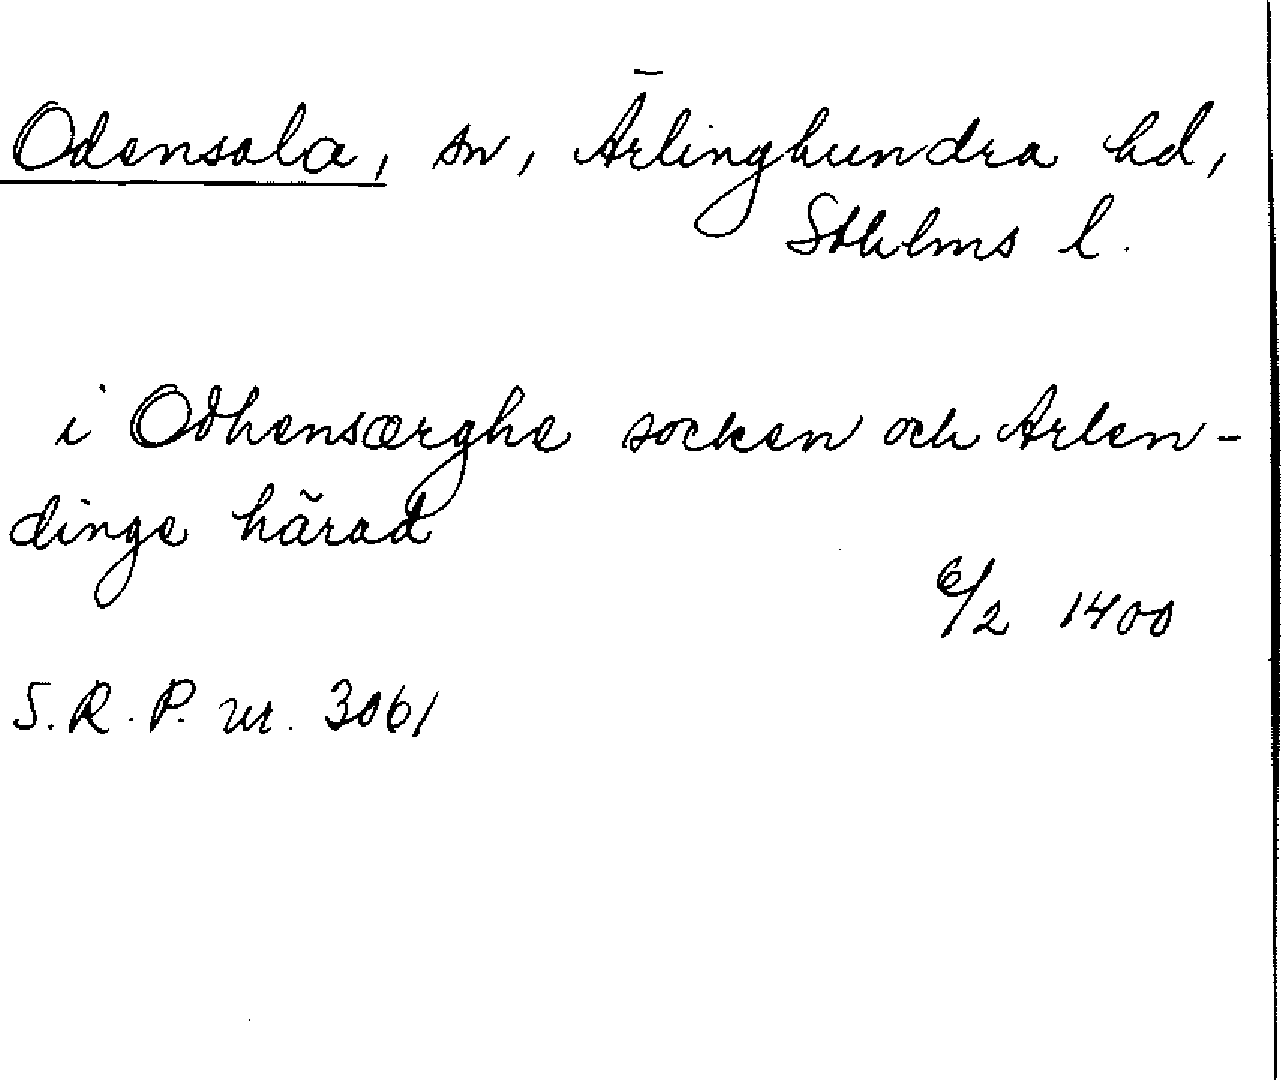 Odensala, sn, Ärlinghundra hd,
Sthlms l.
i Odhensærghe socken och Arlen-
dinge härad
6/2 1400
S.R.P. nr. 3061